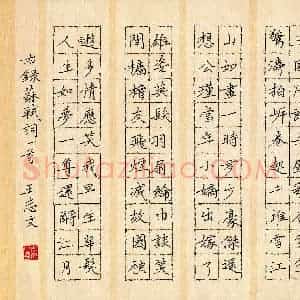 驚濤拍岸卷起千堆雪江
山如畫一時多少豪傑遙
想公瑾當年小嬌出嫁了
雄姿英發羽扇綸巾談笑
間檣櫓灰飛煙滅故國神
遊多情應笑我早生華髮
人生如夢一尊還酹江月
右錄蘇軾詞一首 王志文